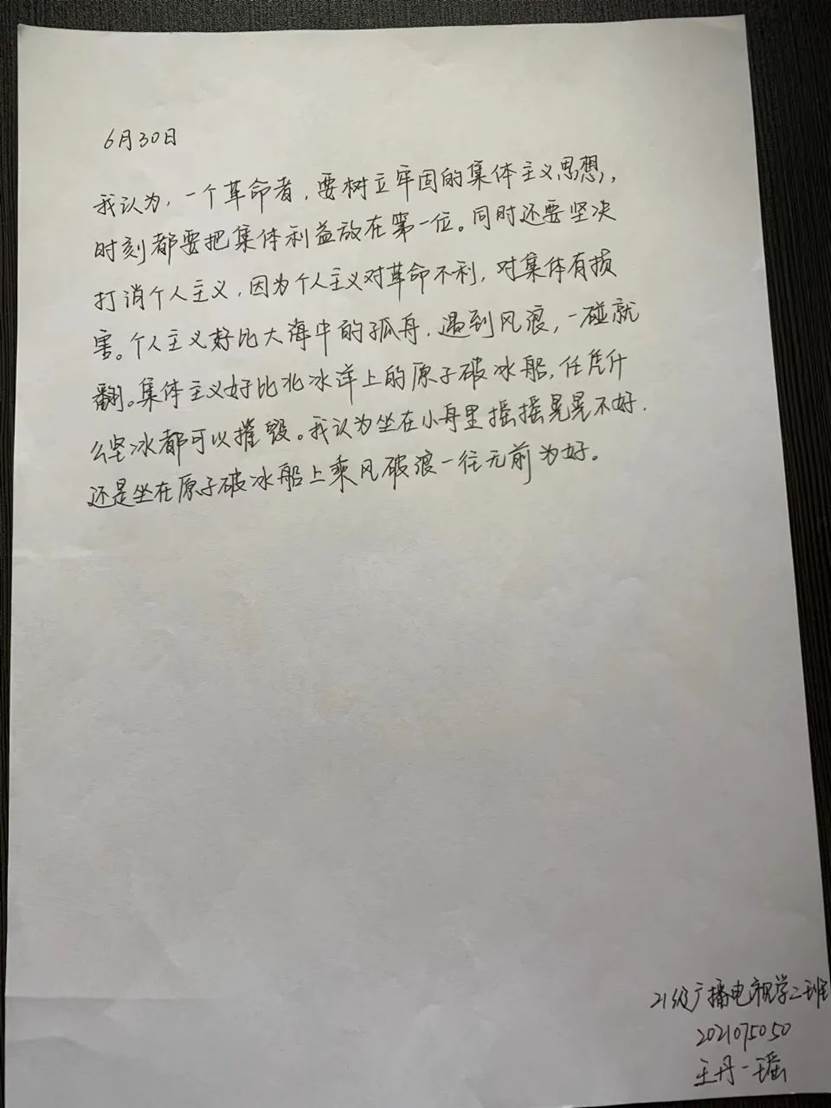 6月30日
我认为，一个革命者，要树立牢固的集体主义思想，
时刻都要把集体利益放在第一位。同时还要坚决
打消个人主义，因为个人主义对革命不利，对集体有损
害。个人主义好比大海中的孤舟，遇到风浪，一碰就
翻。集体主义好比北冰洋上的原子破冰船，任凭什
么坚冰都可以摧毁。我认为坐在小舟里摇摇晃晃不好，
还是坐在原子破冰船上乘风破浪一往无前为好。
21级广播电视学二班
2021075050
王丹一瑶